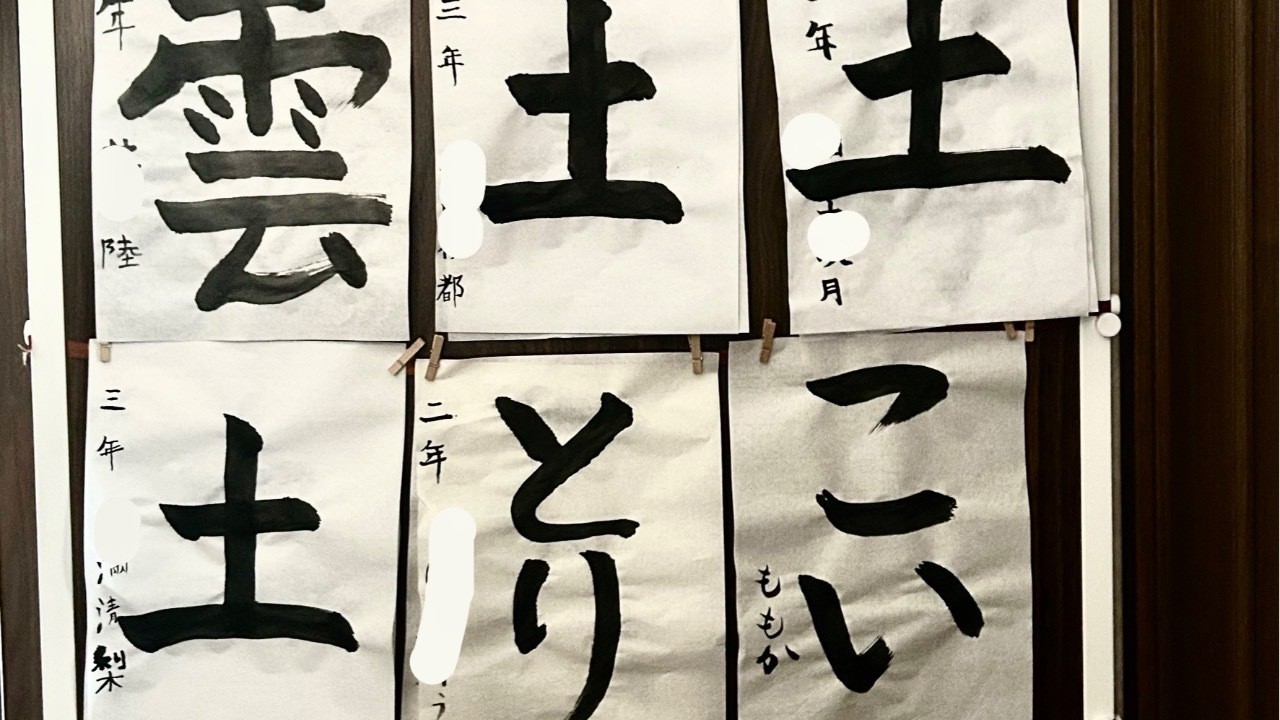 雲
年
陸
土
三年
都
土
年
月
土
三年
清梨
とり
二年
う
こい
ももか